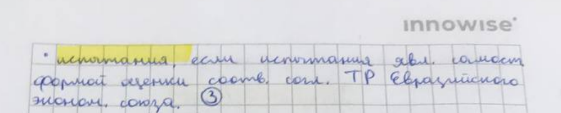 innowise
• испытания, если испытания явл. самост
формой оценки соотв. согл. ТР Евразийского
эконом. союза. ③